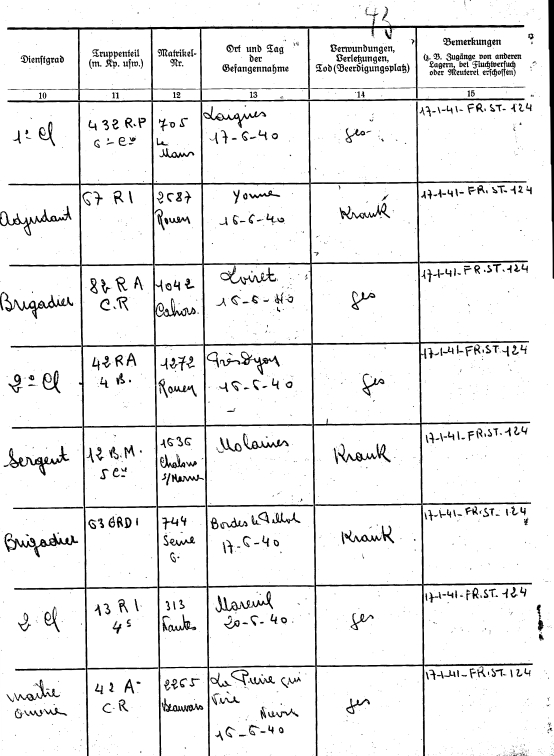 43
Dienstgrad
Truppenteil
(m. Kp. usw.)
Matrikel-
Nr.
Ort und Tag
der
Gefangennahme
Verwundungen,
Verletzungen,
Tod (Beerdigungsplatz)
Bemerkungen
(z. B. Zugänge von anderen
Lagern, bei Fluchtversuch
oder Meuterei erschossen)
10 11 12 13 14 15
1° Cl
432 R.P
6° Cie
705
Le
Mans
Loignes
17-6-40
ges-
17-1-41-FR.ST-124
Adjudant
67 RI
2587
Rouen
Yonne
16-6-40
Krank
17-1-41-FR.ST-124
Brigadier
82 RA
C.R
1042
Cahors
Loiret
16-6-40
ges
17-1-41-FR.ST-124
2° Cl
42 RA
4 B.
1272
Rouen
16-6-40
ges
17-1-41-FR.ST-124
Sergent
12 B.M.
5 Cie
1636
Chalons
s/Marne
Molaines
Krank
17-1-41-FR.ST-124
Brigadier
63 GRDI
744
Seine
6.
Bordes
17-6-40
Krank
17-1-41-FR.ST-124
2 Cl
13 RI
313
Mareuil
20-6-40
ges
17-1-41-FR.ST-124
maitre
ouvrier
42 A-
C.R
2265
Beauvais
La Pierre qui
Vire
Nièvre
16-6-40
ges
17-1-41-FR.ST-124